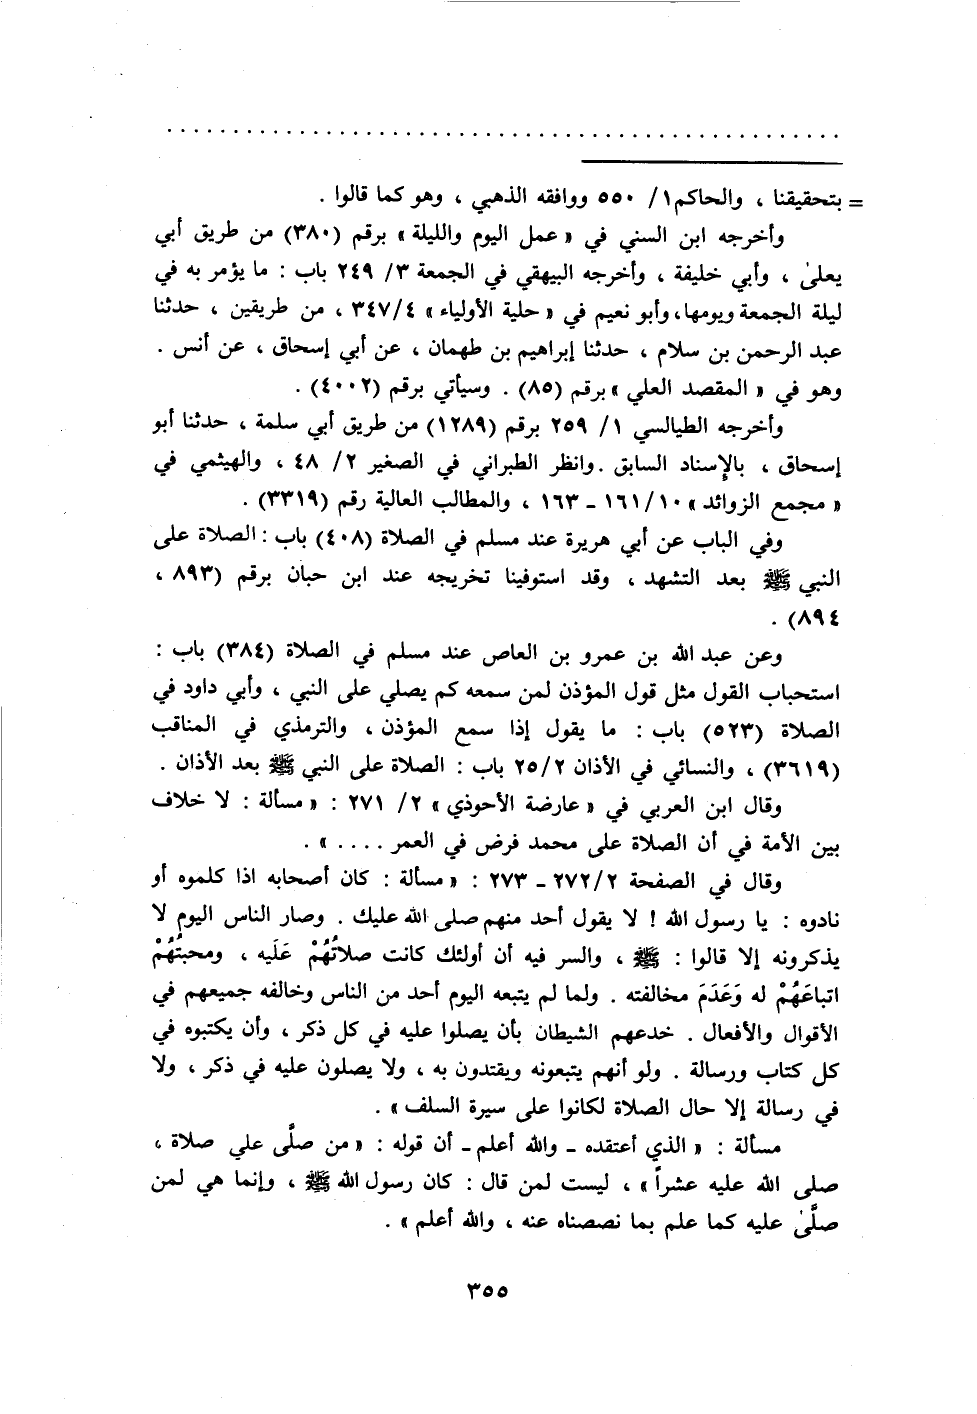 = بتحقيقنا ، والحاكم ١/ ٥٥٠ ووافقه الذهبي ، وهو كما قالوا .
وأخرجه ابن السني في « عمل اليوم والليلة » برقم (٣٨٠) من طريق أبي
يعلىٰ ، وأبي خليفة ، وأخرجه البيهقي في الجمعة ٣/ ٢٤٩ باب : ما يؤمر به في
ليلة الجمعة ويومها، وأبو نعيم في « حلية الأولياء » ٣٤٧/٤ ، من طريقين ، حدثنا
عبد الرحمن بن سلام ، حدثنا إبراهيم بن طهمان ، عن أبي إسحاق ، عن أنس .
وهو في « المقصد العلي » برقم (٨٥) . وسيأتي برقم (٤٠٠٢) .
وأخرجه الطيالسي ١/ ٢٥٩ برقم (١٢٨٩) من طريق أبي سلمة ، حدثنا أبو
إسحاق ، بالإسناد السابق . وانظر الطبراني في الصغير ٢/ ٤٨ ، والهيثمي في
« مجمع الزوائد » ١٦١/١٠ ـ ١٦٣ ، والمطالب العالية رقم (٣٣١٩) .
وفي الباب عن أبي هريرة عند مسلم في الصلاة (٤٠٨) باب : الصلاة على
النبي ﷺ بعد التشهد ، وقد استوفينا تخريجه عند ابن حبان برقم (٨٩٣ ،
٨٩٤) .
وعن عبد الله بن عمرو بن العاص عند مسلم في الصلاة (٣٨٤) باب :
استحباب القول مثل قول المؤذن لمن سمعه كم يصلي على النبي ، وأبي داود في
الصلاة (٥٢٣) باب : ما يقول إذا سمع المؤذن ، والترمذي في المناقب
(٣٦١٩) ، والنسائي في الأذان ٢٥/٢ باب : الصلاة على النبي ﷺ بعد الأذان .
وقال ابن العربي في « عارضة الأحوذي » ٢/ ٢٧١ : « مسألة : لا خلاف
بين الأمة في أن الصلاة على محمد فرض في العمر .... » .
وقال في الصفحة ٢٧٢/٢ ـ ٢٧٣ : « مسألة : كان أصحابه اذا كلموه أو
نادوه : يا رسول الله ! لا يقول أحد منهم صلى الله عليك . وصار الناس اليوم لا
يذكرونه إلا قالوا : ﷺ ، والسر فيه أن أولئك كانت صلاتُهُمْ عَلَيه ، ومحبتُهُمْ
اتباعَهُمْ له وَعَدَمَ مخالفته . ولما لم يتبعه اليوم أحد من الناس وخالفه جميعهم في
الأقوال والأفعال . خدعهم الشيطان بأن يصلوا عليه في كل ذكر ، وأن يكتبوه في
كل كتاب ورسالة . ولو أنهم يتبعونه ويقتدون به ، ولا يصلون عليه في ذكر ، ولا
في رسالة إلا حال الصلاة لكانوا على سيرة السلف » .
مسألة : « الذي أعتقده ـ والله أعلم ـ أن قوله : « من صلَّى علي صلاة ،
صلى الله عليه عشراً » ، ليست لمن قال : كان رسول الله ﷺ ، وإنما هي لمن
صلَّىٰ عليه كما علم بما نصصناه عنه ، والله أعلم » .
٣٥٥